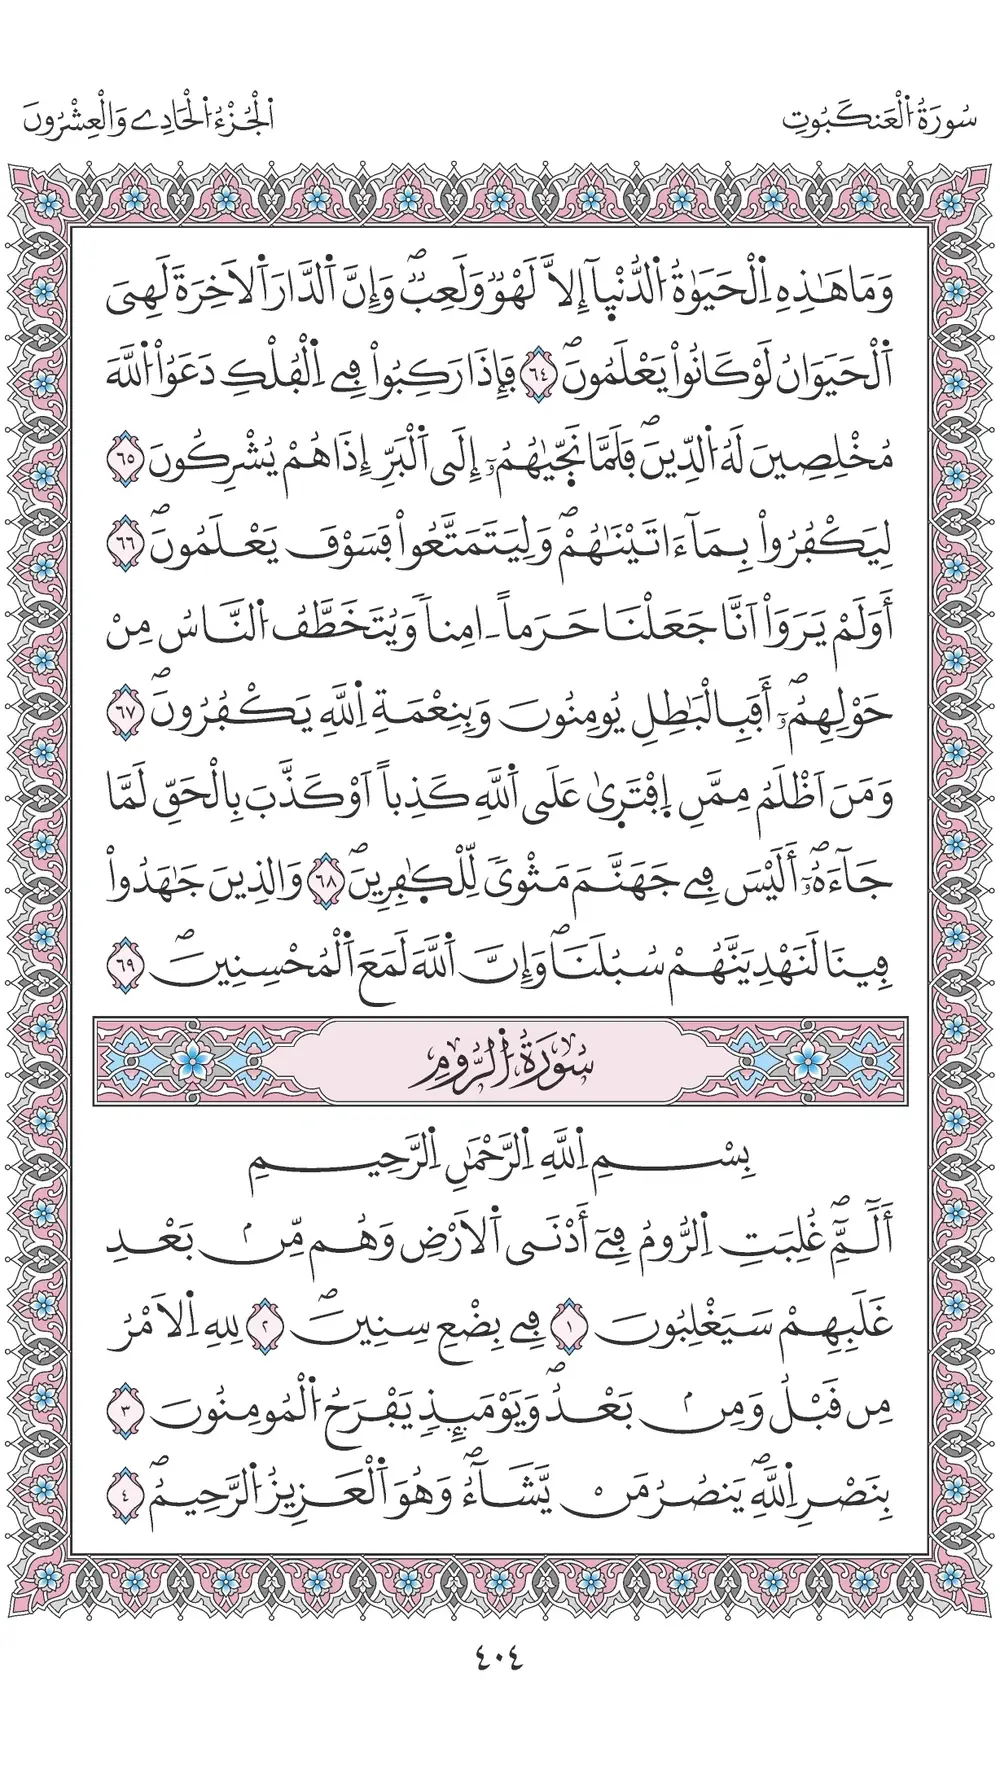 سُورَةُ اُ۬لْعَنكَبُوتِ
اَ۬لْجُزْءُ اُ۬لْحَادِے وَالْعِشْرُونَ
وَمَا هَٰذِهِ اِ۬لْحَيَوٰةُ اُ۬لدُّنْي۪آ إِلَّا لَهْوٞ وَلَعِبٞۖ وَإِنَّ اَ۬لدَّارَ اَ۬لَاخِرَةَ لَهِىَ
اَ۬لْحَيَوَانُ لَوْ كَانُواْ يَعْلَمُونَۖ ٦٤ فَإِذَا رَكِبُواْ فِے اِ۬لْفُلْكِ دَعَوُاْ اُ۬للَّهَ
مُخْلِصِينَ لَهُ اُ۬لدِّينَۖ فَلَمَّا نَجّ۪يٰهُمُۥٓ إِلَى اَ۬لْبَرِّ إِذَا هُمْ يُشْرِكُونَ ٦٥
لِيَكْفُرُواْ بِمَآ ءَاتَيْنَٰهُمْۖ وَلِيَتَمَتَّعُواْ فَسَوْفَ يَعْلَمُونَۖ ٦٦
أَوَلَمْ يَرَوَاْ اَنَّا جَعَلْنَا حَرَماً ـ امِناٗ وَيُتَخَطَّفُ اُ۬لنَّاسُ مِنْ
حَوْلِهِمُۥٓۖ أَفَبِالْبَٰطِلِ يُومِنُونَ وَبِنِعْمَةِ اِ۬للَّهِ يَكْفُرُونَۖ ٦٧
وَمَنَ اَظْلَمُ مِمَّنِ اِ۪فْتَر۪ىٰ عَلَى اَ۬للَّهِ كَذِباً اَوْ كَذَّبَ بِالْحَقِّ لَمَّا
جَآءَهُۥٓۖ أَلَيْسَ فِے جَهَنَّمَ مَثْوىٗ لِّلْكٰ۪فِرِينَۖ ٦٨ وَالذِينَ جَٰهَدُواْ
فِينَا لَنَهْدِيَنَّهُمْ سُبُلَنَاۖ وَإِنَّ اَ۬للَّهَ لَمَعَ اَ۬لْمُحْسِنِينَۖ ٦٩
سُورَةُ اُ۬لرُّومِ
بِسْمِ اِ۬للَّهِ اِ۬لرَّحْمَٰنِ اِ۬لرَّحِيمِ
أَلَٓمِّٓۖ غُلِبَتِ اِ۬لرُّومُ فِےٓ أَدْنَى اَ۬لَارْضِ وَهُم مِّنۢ بَعْدِ
غَلَبِهِمْ سَيَغْلِبُونَ ١ فِے بِضْعِ سِنِينَۖ ٢ لِلهِ اِ۬لَامْرُ
مِن قَبْلُ وَمِنۢ بَعْدُۖ وَيَوْمَئِذٖ يَفْرَحُ اُ۬لْمُومِنُونَ ٣
بِنَصْرِ اِ۬للَّهِۖ يَنصُرُ مَنْ يَّشَآءُۖ وَهُوَ اَ۬لْعَزِيزُ اُ۬لرَّحِيمُۖ ٤
٤٠٤